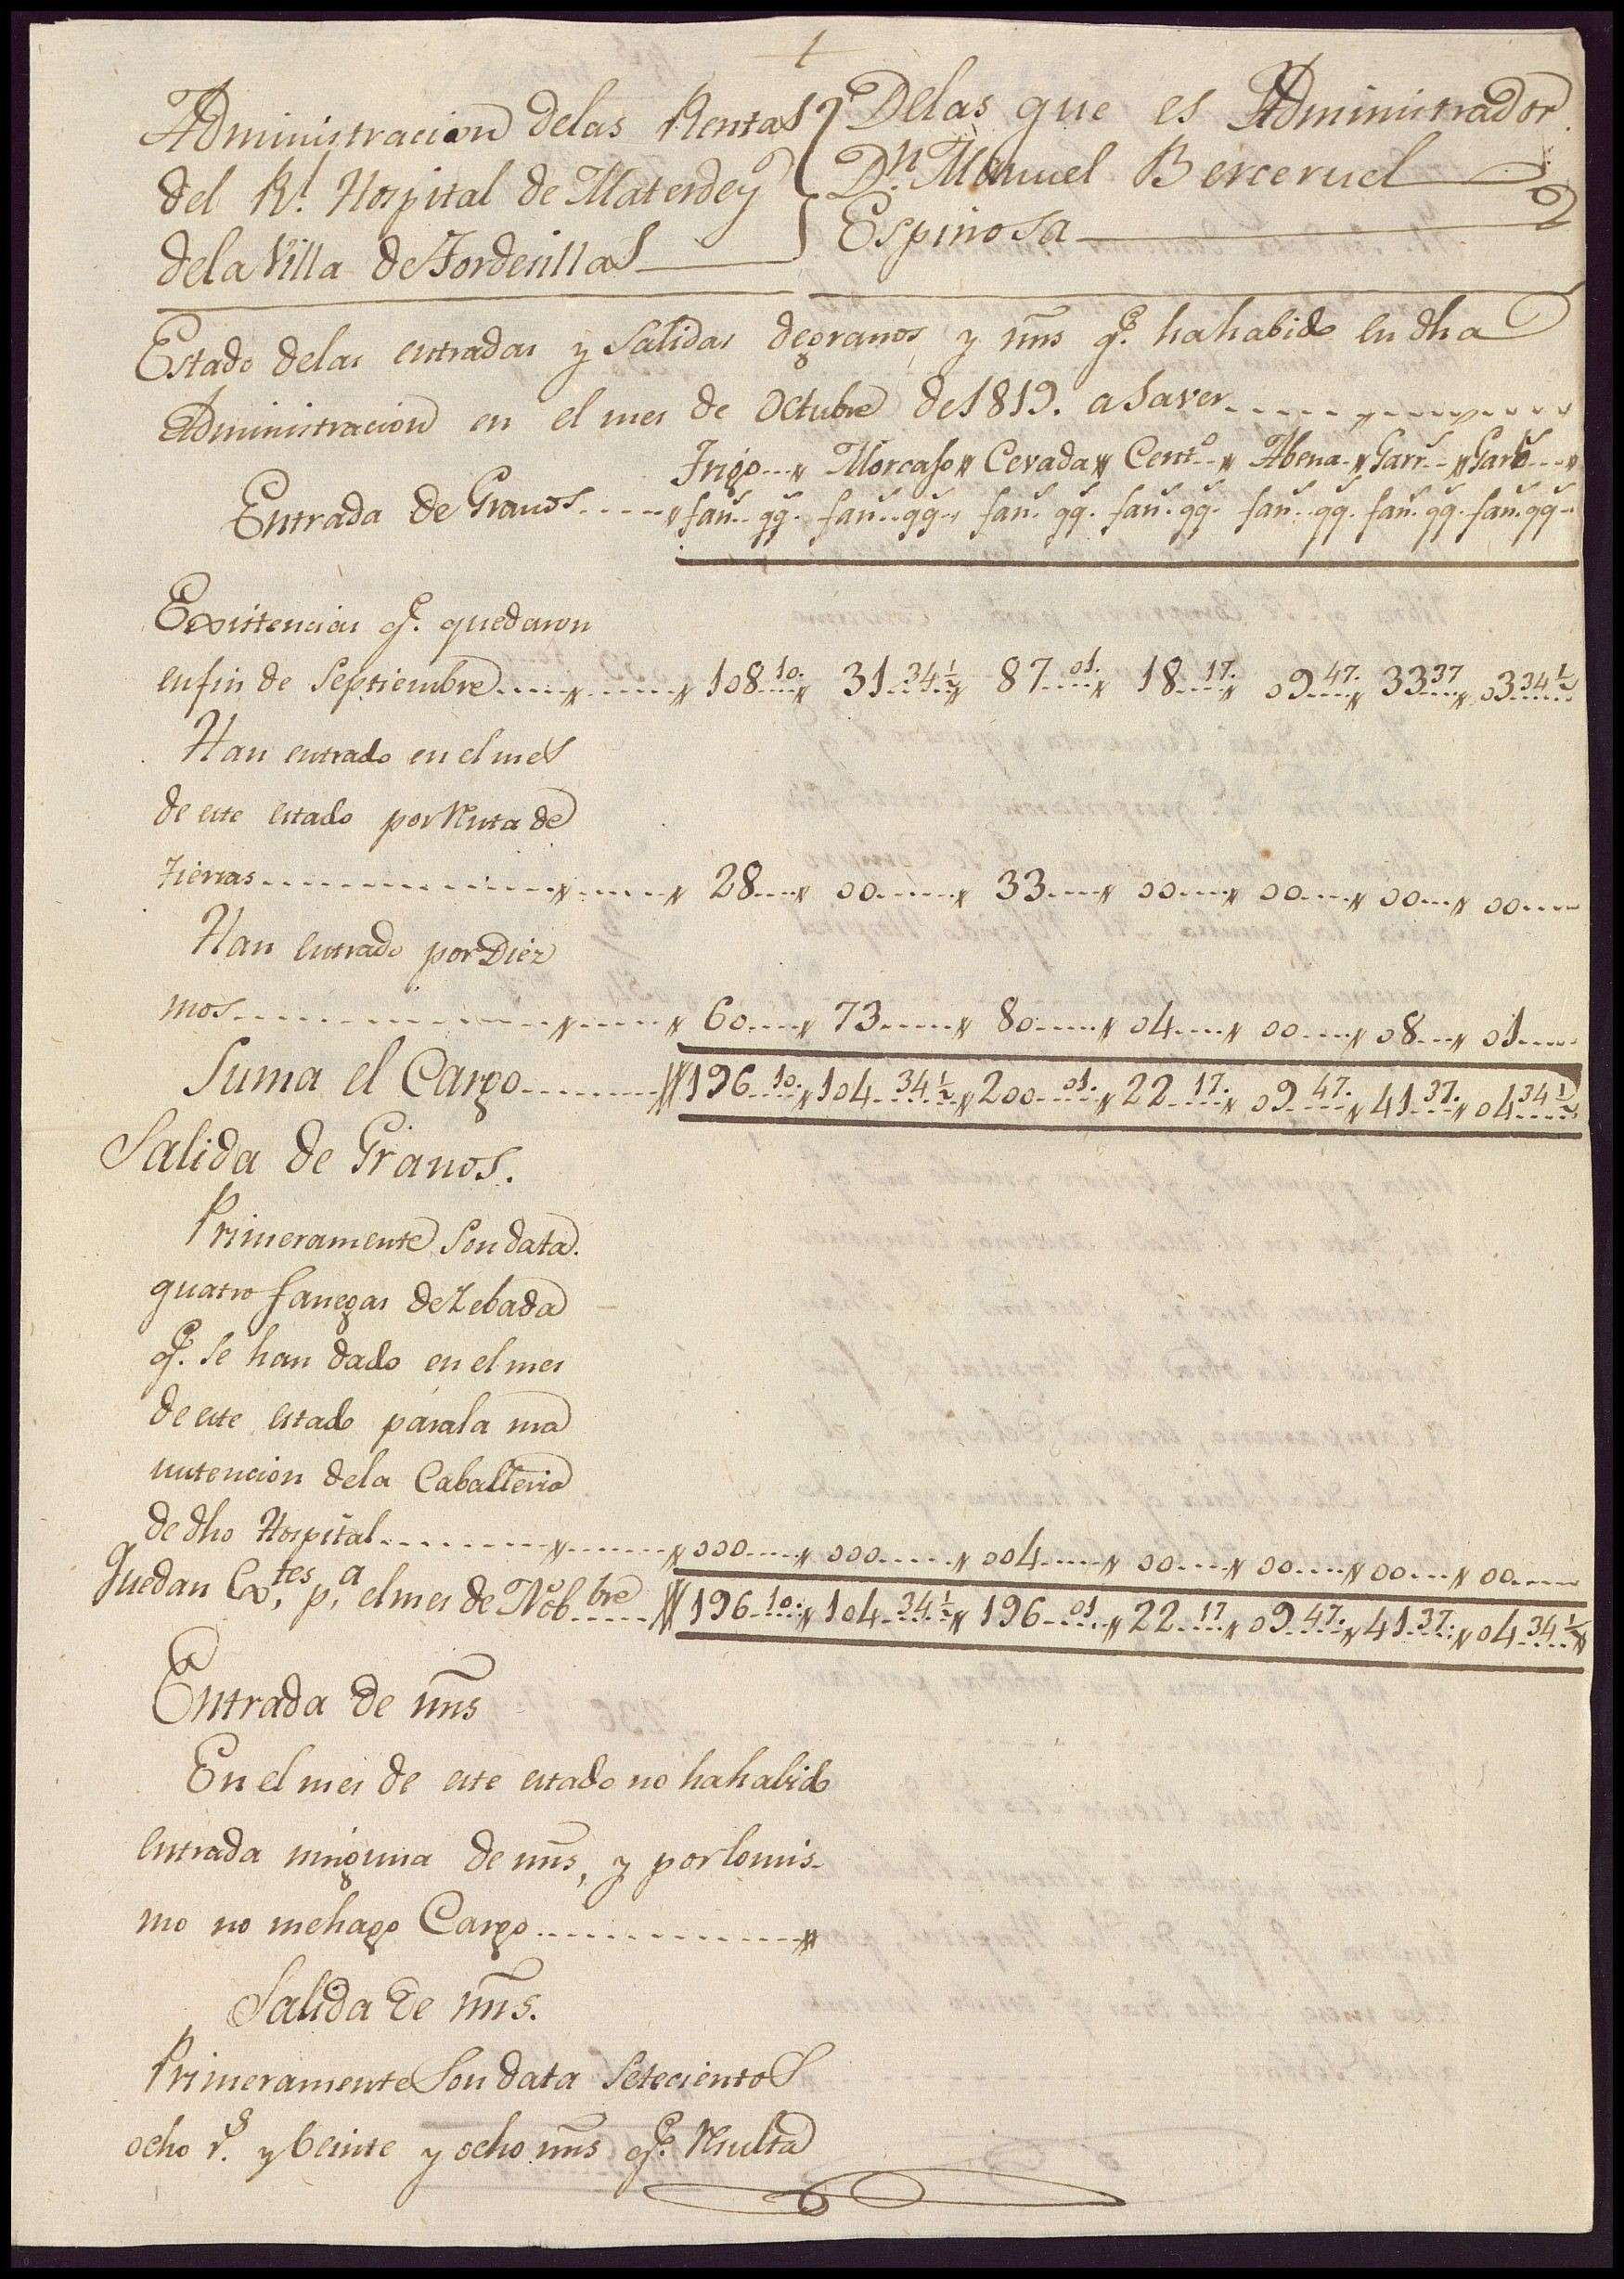 †
Administracion delas Rentas
del Rl. Hospital de Materdey
dela Villa de Tordesillas
Delas que es Administrador
Dn. Manuel Berceruel
Espinosa
Estado delas entradas y salidas degranos, y mrs q.e hahabido en dha
Administracion en el mes de Octubre de 1819. asaver
Trigo Morcajo Cevada Cent.o Abena Garr.s Garb.s
Entrada de Granos fan.s qq.s fan.s qq.s fan.s qq.s fan.s qq.s fan.s qq.s fan.s qq.s fan.s qq.s
Existencias q.e quedaron
enfin de Septiembre 108 10. 31 34½ 87 01. 18 17. 09 47. 33 37 03 34½
Han entrado en elmes
de este estado porRenta de
tierras 28 00 33 00 00 00 00
Han entrado por Diez
mos 60 73 80 04 00 08 01
Suma el Cargo 196 10. 104 34½ 200 01. 22 17. 09 47. 41 37. 04 34½
Salida de Granos.
Primeramente Son data.
quatro fanegas deZebada
q.e se han dado en elmes
de este estado parala ma
nutencion dela Caballeria
de dho Hospital 000 000 004 00 00 00 00
Quedan Ex.tes p.a elmes de Nob.bre 196 10. 104 34½ 196 01 22 17 09 47. 41 37. 04 34½
Entrada de mrs
En elmes de este estado no hahabido
entrada ninguna de mrs, y porlomis-
mo no mehago Cargo
Salida de mrs.
Primeramente Son data Setecientos
ocho r.s y beinte y ocho mrs q.e Resulta